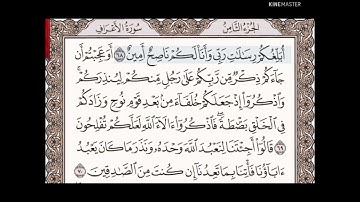 KINEMASTER
الجزء الثامن سورة الأعراف
أُبَلِّغُكُمْ رِسَٰلَٰتِ رَبِّى وَأَنَا۠ لَكُمْ نَاصِحٌ أَمِينٌ ٦٨ أَوَعَجِبْتُمْ أَن
جَآءَكُمْ ذِكْرٌ مِّن رَّبِّكُمْ عَلَىٰ رَجُلٍ مِّنكُمْ لِيُنذِرَكُمْ
وَٱذْكُرُوٓا۟ إِذْ جَعَلَكُمْ خُلَفَآءَ مِنۢ بَعْدِ قَوْمِ نُوحٍ وَزَادَكُمْ
فِى ٱلْخَلْقِ بَصْۜطَةً فَٱذْكُرُوٓا۟ ءَالَآءَ ٱللَّهِ لَعَلَّكُمْ تُفْلِحُونَ
٦٩ قَالُوٓا۟ أَجِئْتَنَا لِنَعْبُدَ ٱللَّهَ وَحْدَهُۥ وَنَذَرَ مَا كَانَ يَعْبُدُ
ءَابَآؤُنَا فَأْتِنَا بِمَا تَعِدُنَآ إِن كُنتَ مِنَ ٱلصَّٰدِقِينَ ٧٠